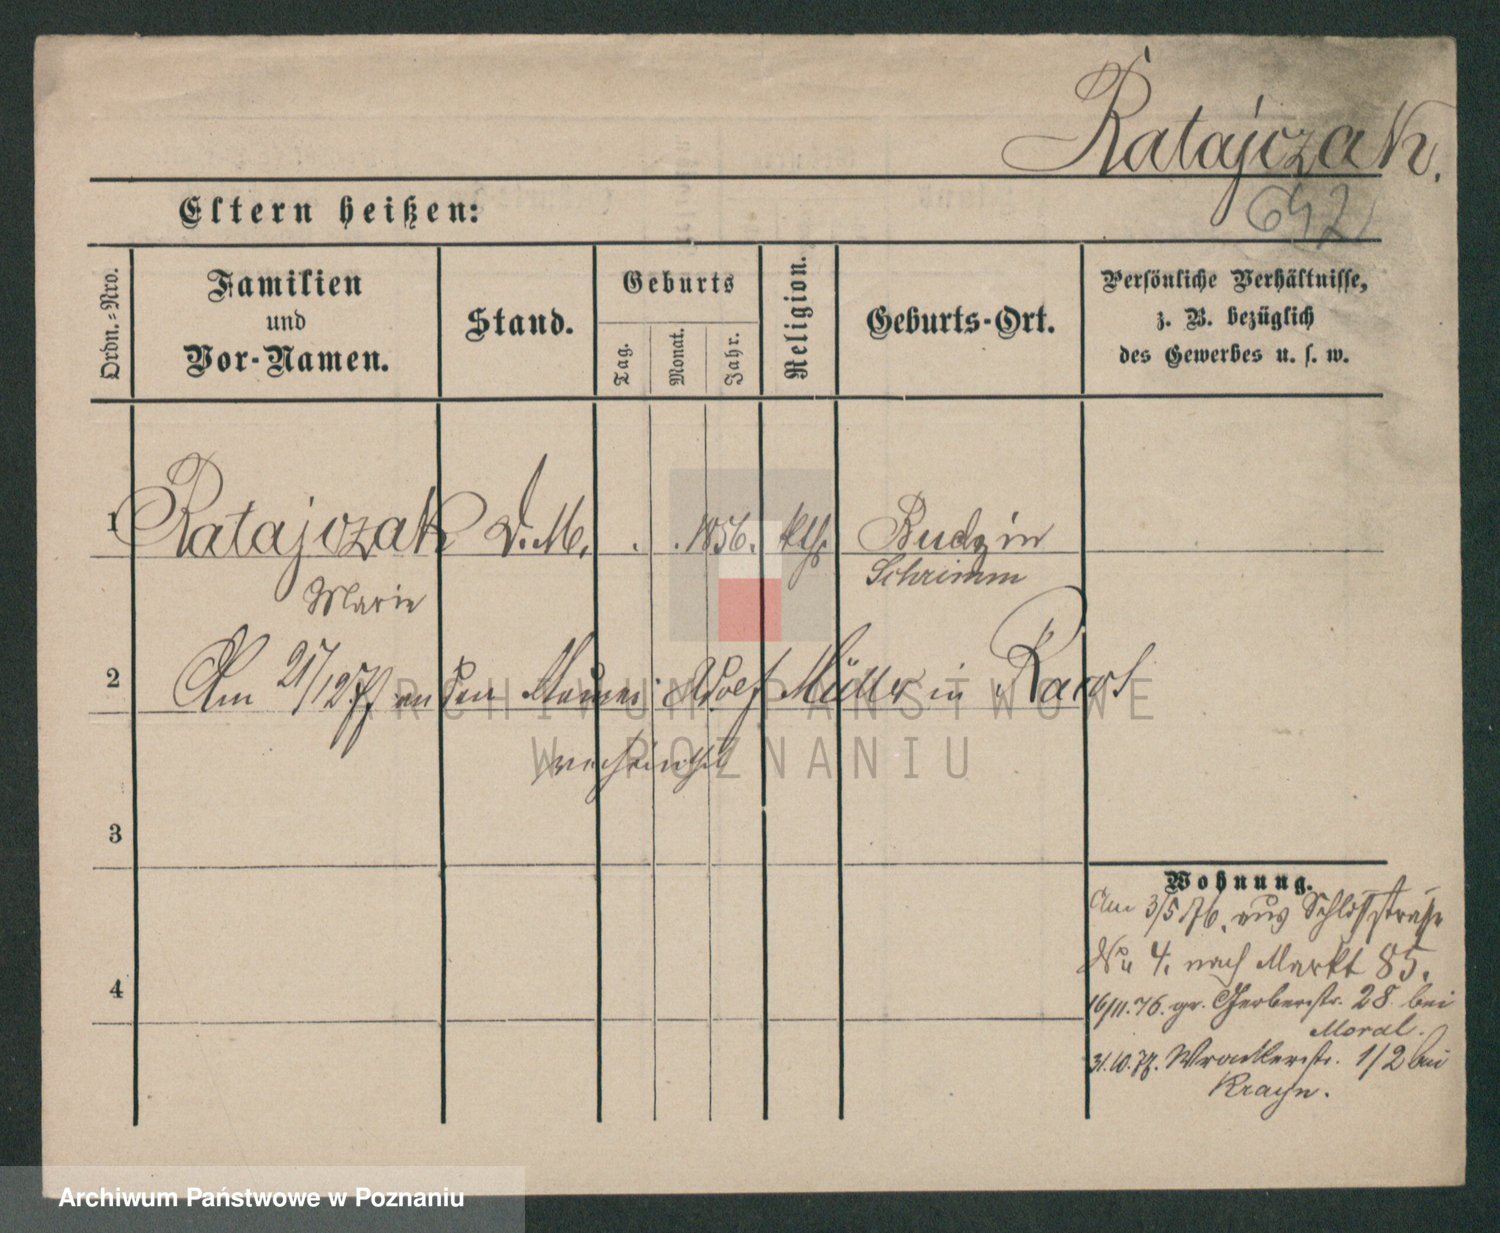 Ratajczak.
Eltern heißen:
Ordn.-Nro.
Familien
und
Vor-Namen.
Stand.
Geburts
Tag.
Monat.
Jahr.
Religion.
Geburts-Ort.
Persönliche Verhältnisse,
z. B. bezüglich
des Gewerbes u. s. w.
1 Ratajczak D. M. . . 1856. kth. Budzin
Marie Schrimm
2 Am 21/12 77 an den Maurer Adolf Müller in
verheirathet
3
Wohnung.
Am 3/5 76. aus Schloßstraße
No 4. nach Markt 85.
4
16/11. 76. gr. Gerberstr. 28 bei
Moral.
31.10.77. Wronkerstr. 1/2 bei
Krayn.
ARCHIWUM PAŃSTWOWE
W POZNANIU
Archiwum Państwowe w Poznaniu